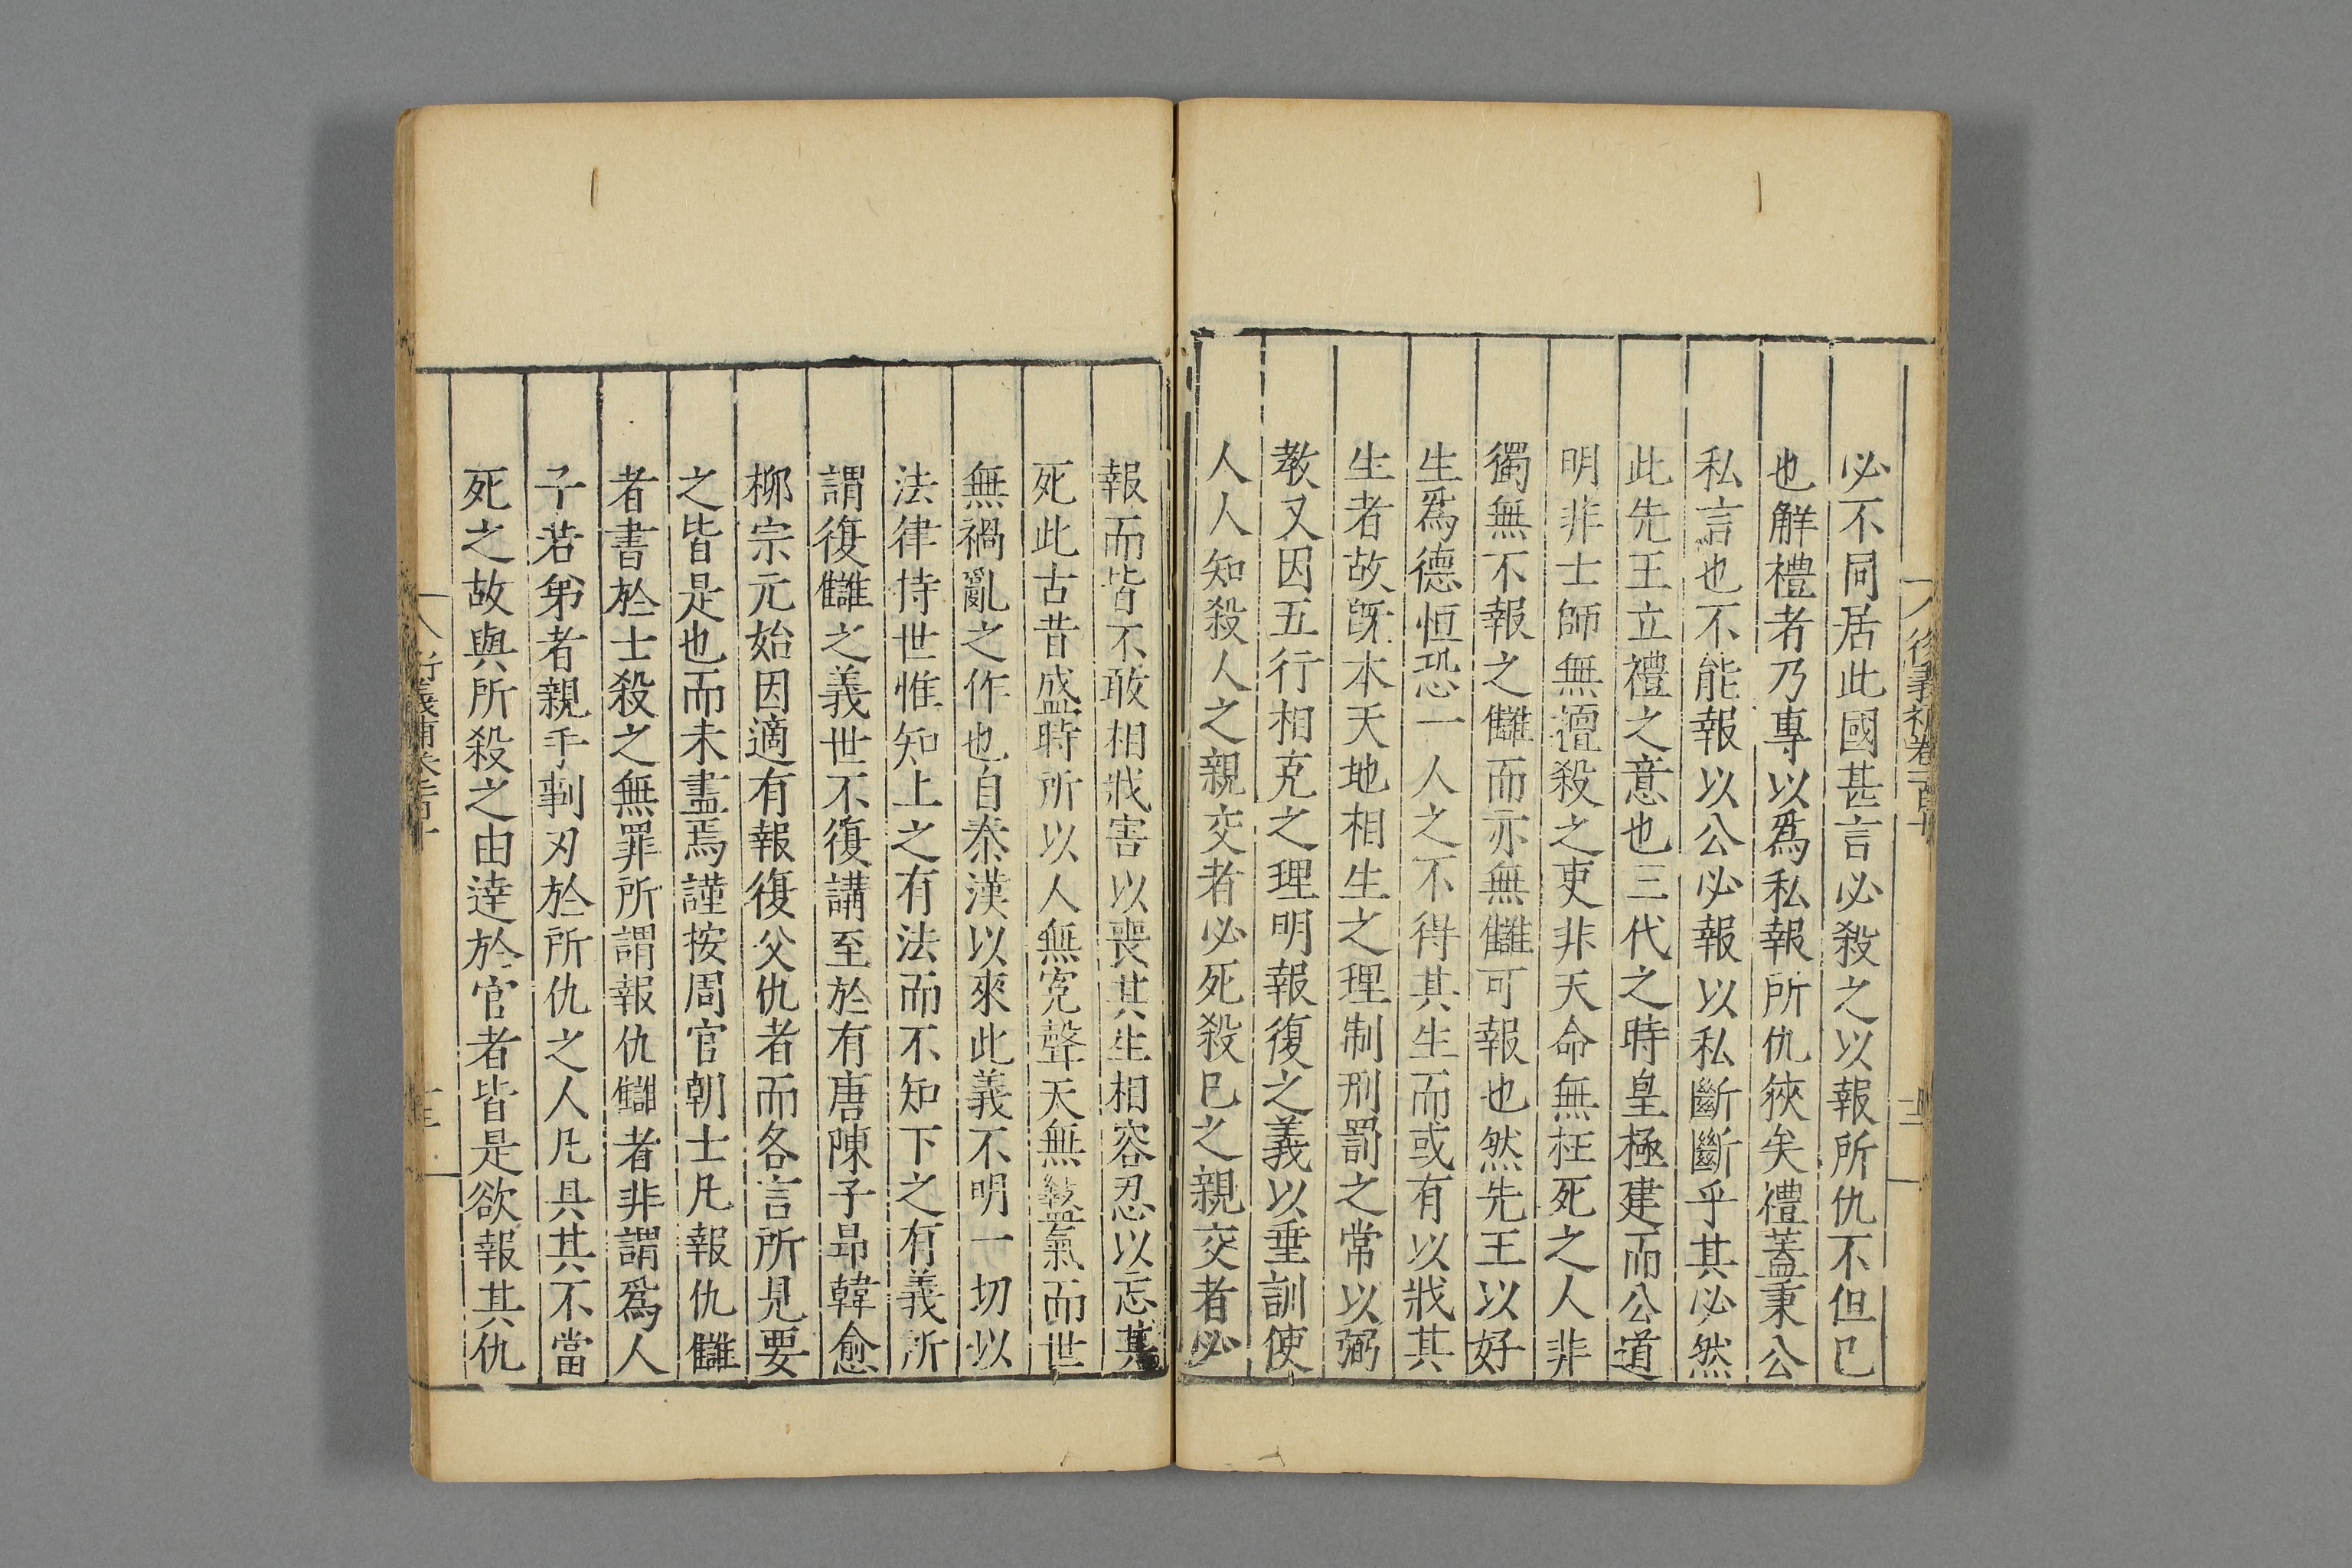 必不同居此國甚言必殺之以報所仇不但已
也解禮者乃專以爲私報所仇狹矣禮蓋秉公
私言也不能報以公必報以私斷斷乎其必然
此先王立禮之意也三代之時皇極建而公道
明非士師無擅殺之吏非天命無枉死之人非
獨無不報之讎而亦無讎可報也然先王以好
生爲德恒恐一人之不得其生而或有以戕其
生者故旣本天地相生之理制刑罰之常以弼
教又因五行相克之理明報復之義以垂訓使
人人知殺人之親交者必死殺已之親交者必
報而皆不敢相戕害以喪其生相容忍以忘其
死此古昔盛時所以人無寃聲天無盭氣而世
無禍亂之作也自秦漢以來此義不明一切以
法律持世惟知上之有法而不知下之有義所
謂復讎之義世不復講至於有唐陳子昻韓愈
柳宗元始因適有報復父仇者而各言所見要
之皆是也而未盡焉謹按周官朝士凡報仇讎
者書於士殺之無罪所謂報仇讎者非謂爲人
子若弟者親手剚刃於所仇之人凡具其不當
死之故與所殺之由達於官者皆是欲報其仇